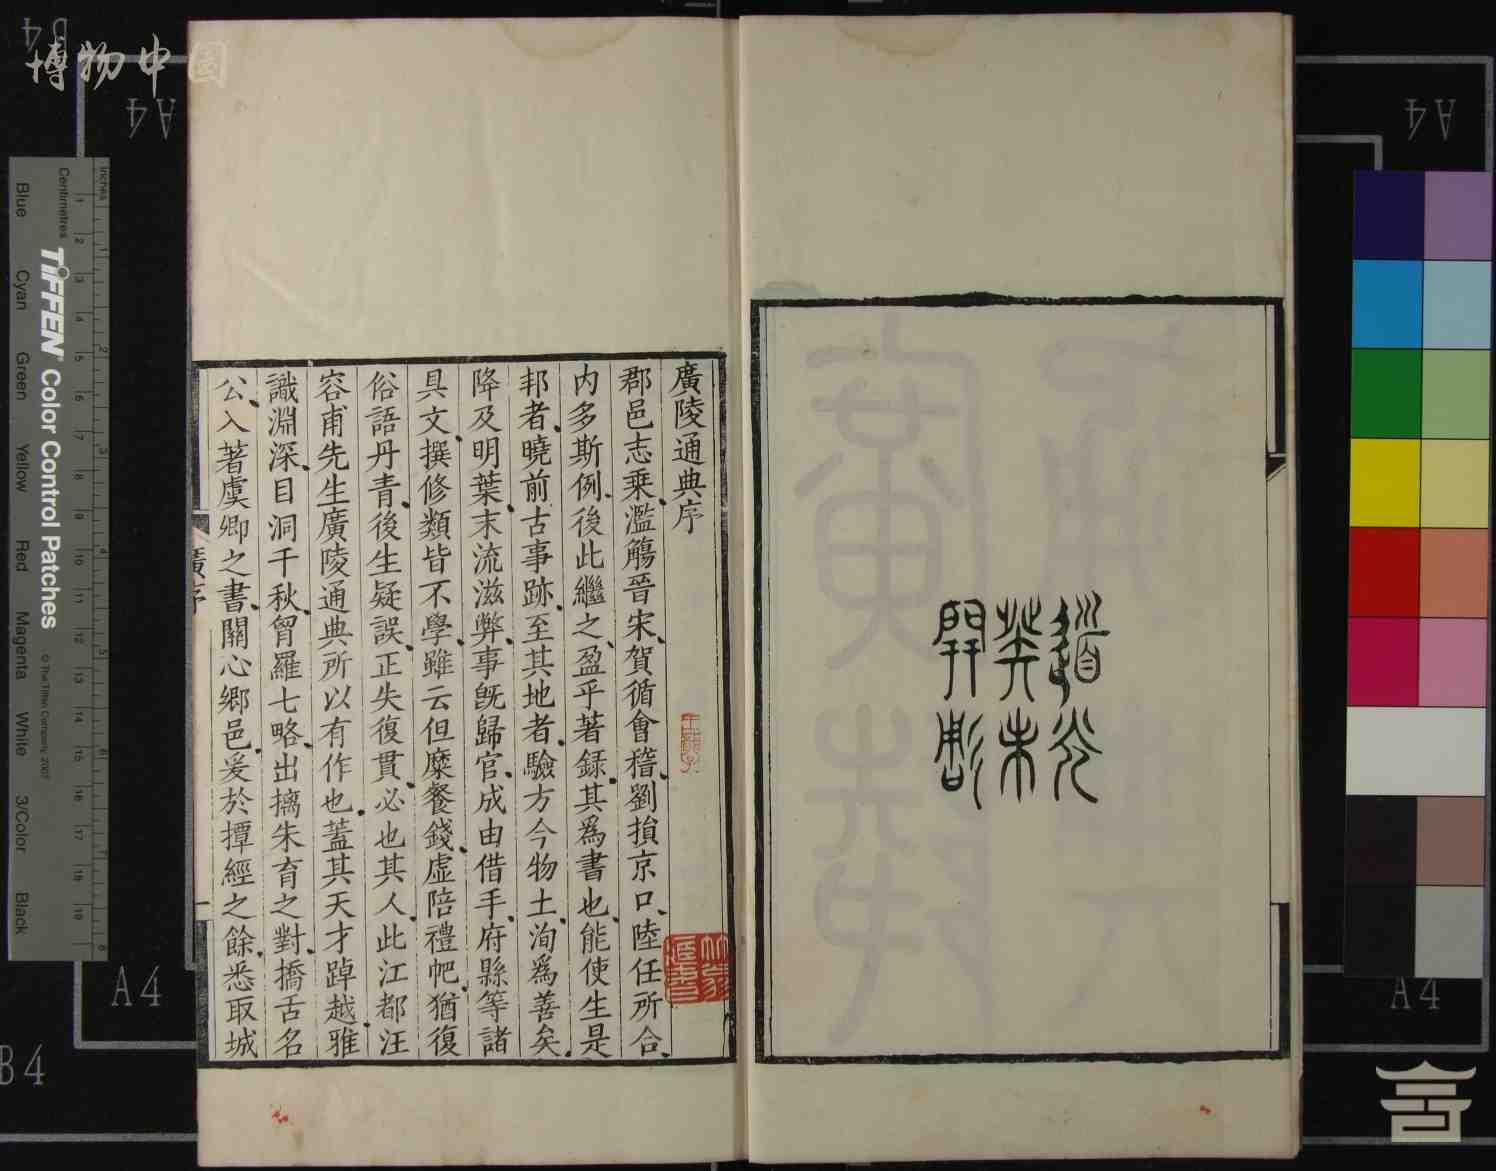 博物中国
道光
癸未
開雕
廣陵通典序
郡邑志乘濫觴晉宋賀循會稽劉損京口陸任所合
内多斯例後此繼之盈乎著録其爲書也能使生是
邦者曉前古事跡至其地者驗方今物土洵爲善矣
降及明葉末流滋弊事旣歸官成由借手府縣等諸
具文撰修類皆不學雖云但糜餐錢虛陪禮帊猶復
俗語丹青後生疑誤正失復貫必也其人此江都汪
容甫先生廣陵通典所以有作也蓋其天才踔越雅
識淵深目洞千秋胷羅七略出摛朱育之對撟舌名
公入著虞卿之書關心鄉邑爰於撢經之餘悉取城
廣序
一
B4
A4
A4
A4
A4
B4
Inches
Centimetres
1 2 3 4 5 6 7 8 9 10 11 12 13 14 15 16 17 18 19
TIFFEN Color Control Patches
© The Tiffen Company, 2007
Blue Cyan Green Yellow Red Magenta White 3/Color Black